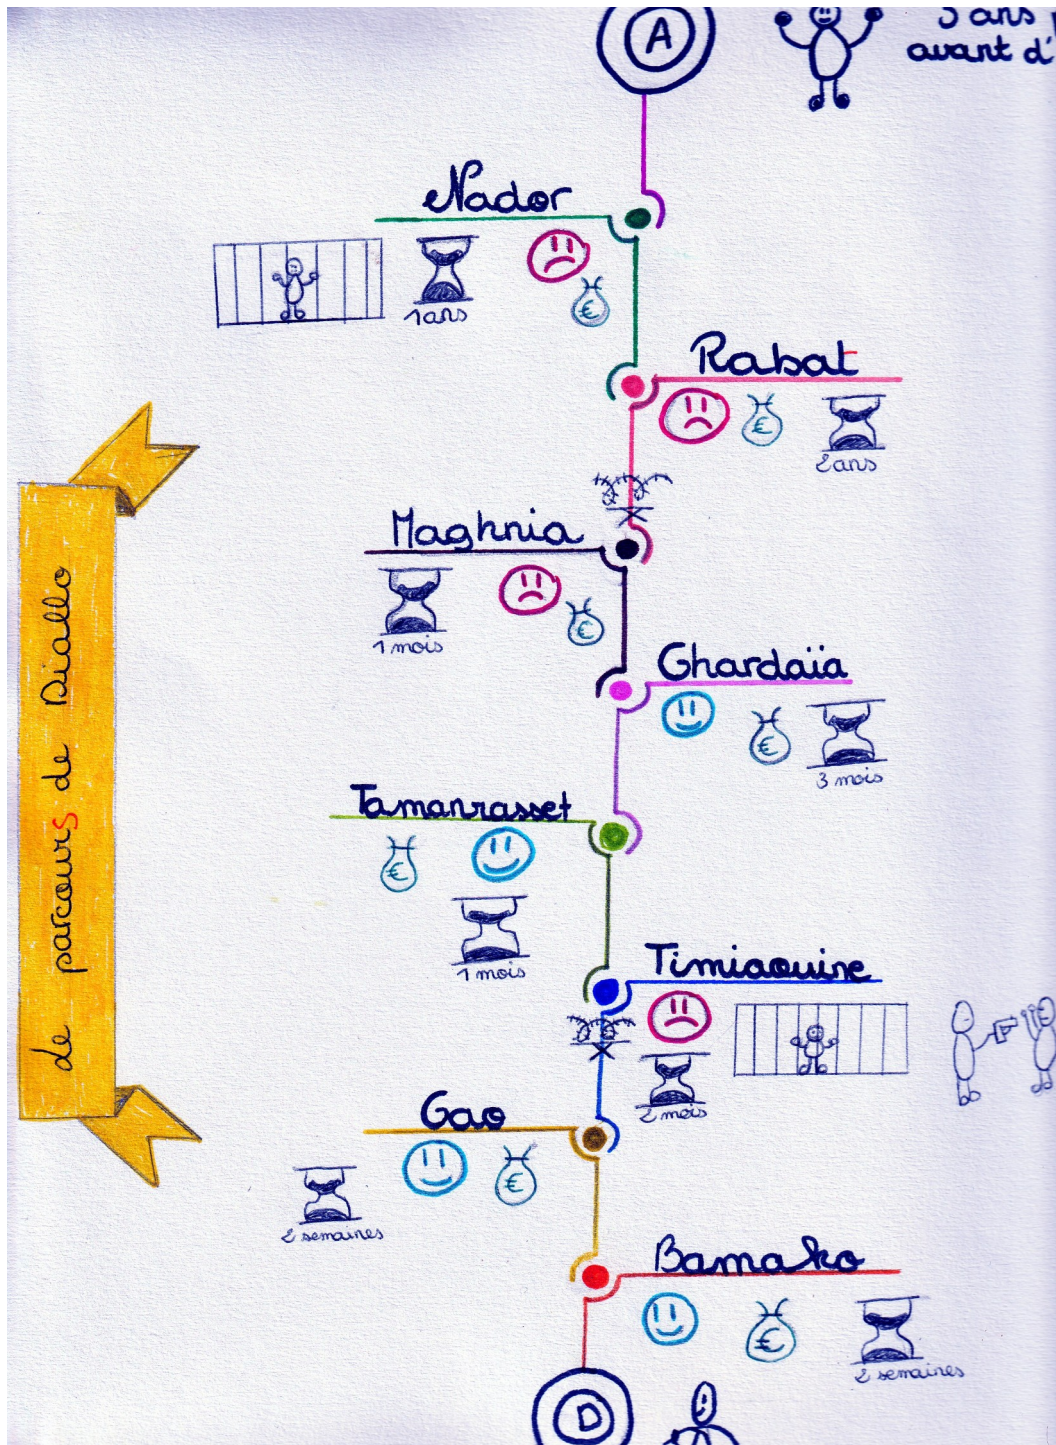 A
3 ans
avant d'
Nador
1 ans
€
Rabat
€
2 ans
Maghnia
€
1 mois
Ghardaïa
€
3 mois
Tamanrasset
€
1 mois
Timiaouine
2 mois
Gao
€
2 semaines
Bamako
€
2 semaines
D
de parcours de Diallo